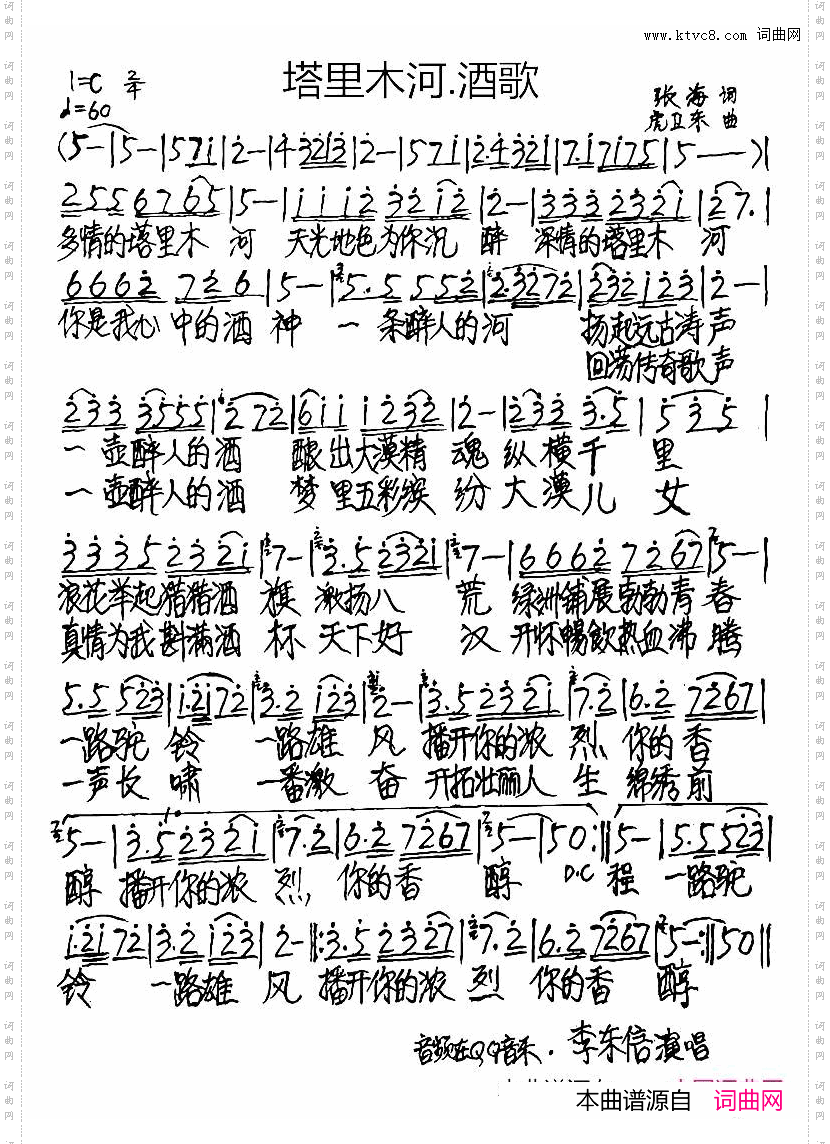 www.ktvc8.com 词曲网
塔里木河.酒歌
1=C 2/4
♩=60
张海 词
虎卫东 曲
(5-|5-|571|2-|4 3213|2-|571|2·4 321|7·17175|5--)|
2556 765|5-|1112 3212|2-|333 2321|27·|
多情的塔里木 河 天光地色为你沉 醉 深情的塔里木 河
6662 726|5-|5·5 552|2·3272|232123|2-|
你是我心中的酒 神 一条醉人的河 扬起远古涛声
回荡传奇歌声
233 3555|272|611 1232|2-|233 3·5|535|
一壶醉人的酒 酿出大漠精 魂 纵横千 里
一壶醉人的酒 梦里五彩缤 纷 大漠儿 女
3335 2321|7-|3·5 2321|7-|6662 7267|5-|
浪花举起猎猎酒 旗 激扬八 荒 绿洲铺展勃勃青 春
真情为我斟满酒 杯 天下好 汉 开怀畅飲热血沸 腾
5·5 523|1·2172|3·2 123|2-|3·5 2321|7·2|6·2 7267|
一路驼 铃 一路雄 风 播开你的浓 烈 你的香
一声长 啸 一番激 奋 开拓壮丽人 生 绵绣前
5-|3·5 2321|7·2|6·2 7267|5-|50:||5-|5·5 523|
醇 播开你的浓 烈 你的香 醇 D.C 程 一路驼
1·2172|3·2 123|2-|:3·5 2327|7·2|6·2 7267|5-:||50||
铃 一路雄 风 播开你的浓 烈 你的香 醇
音频在QQ音乐.李东信演唱
本曲谱源自 词曲网